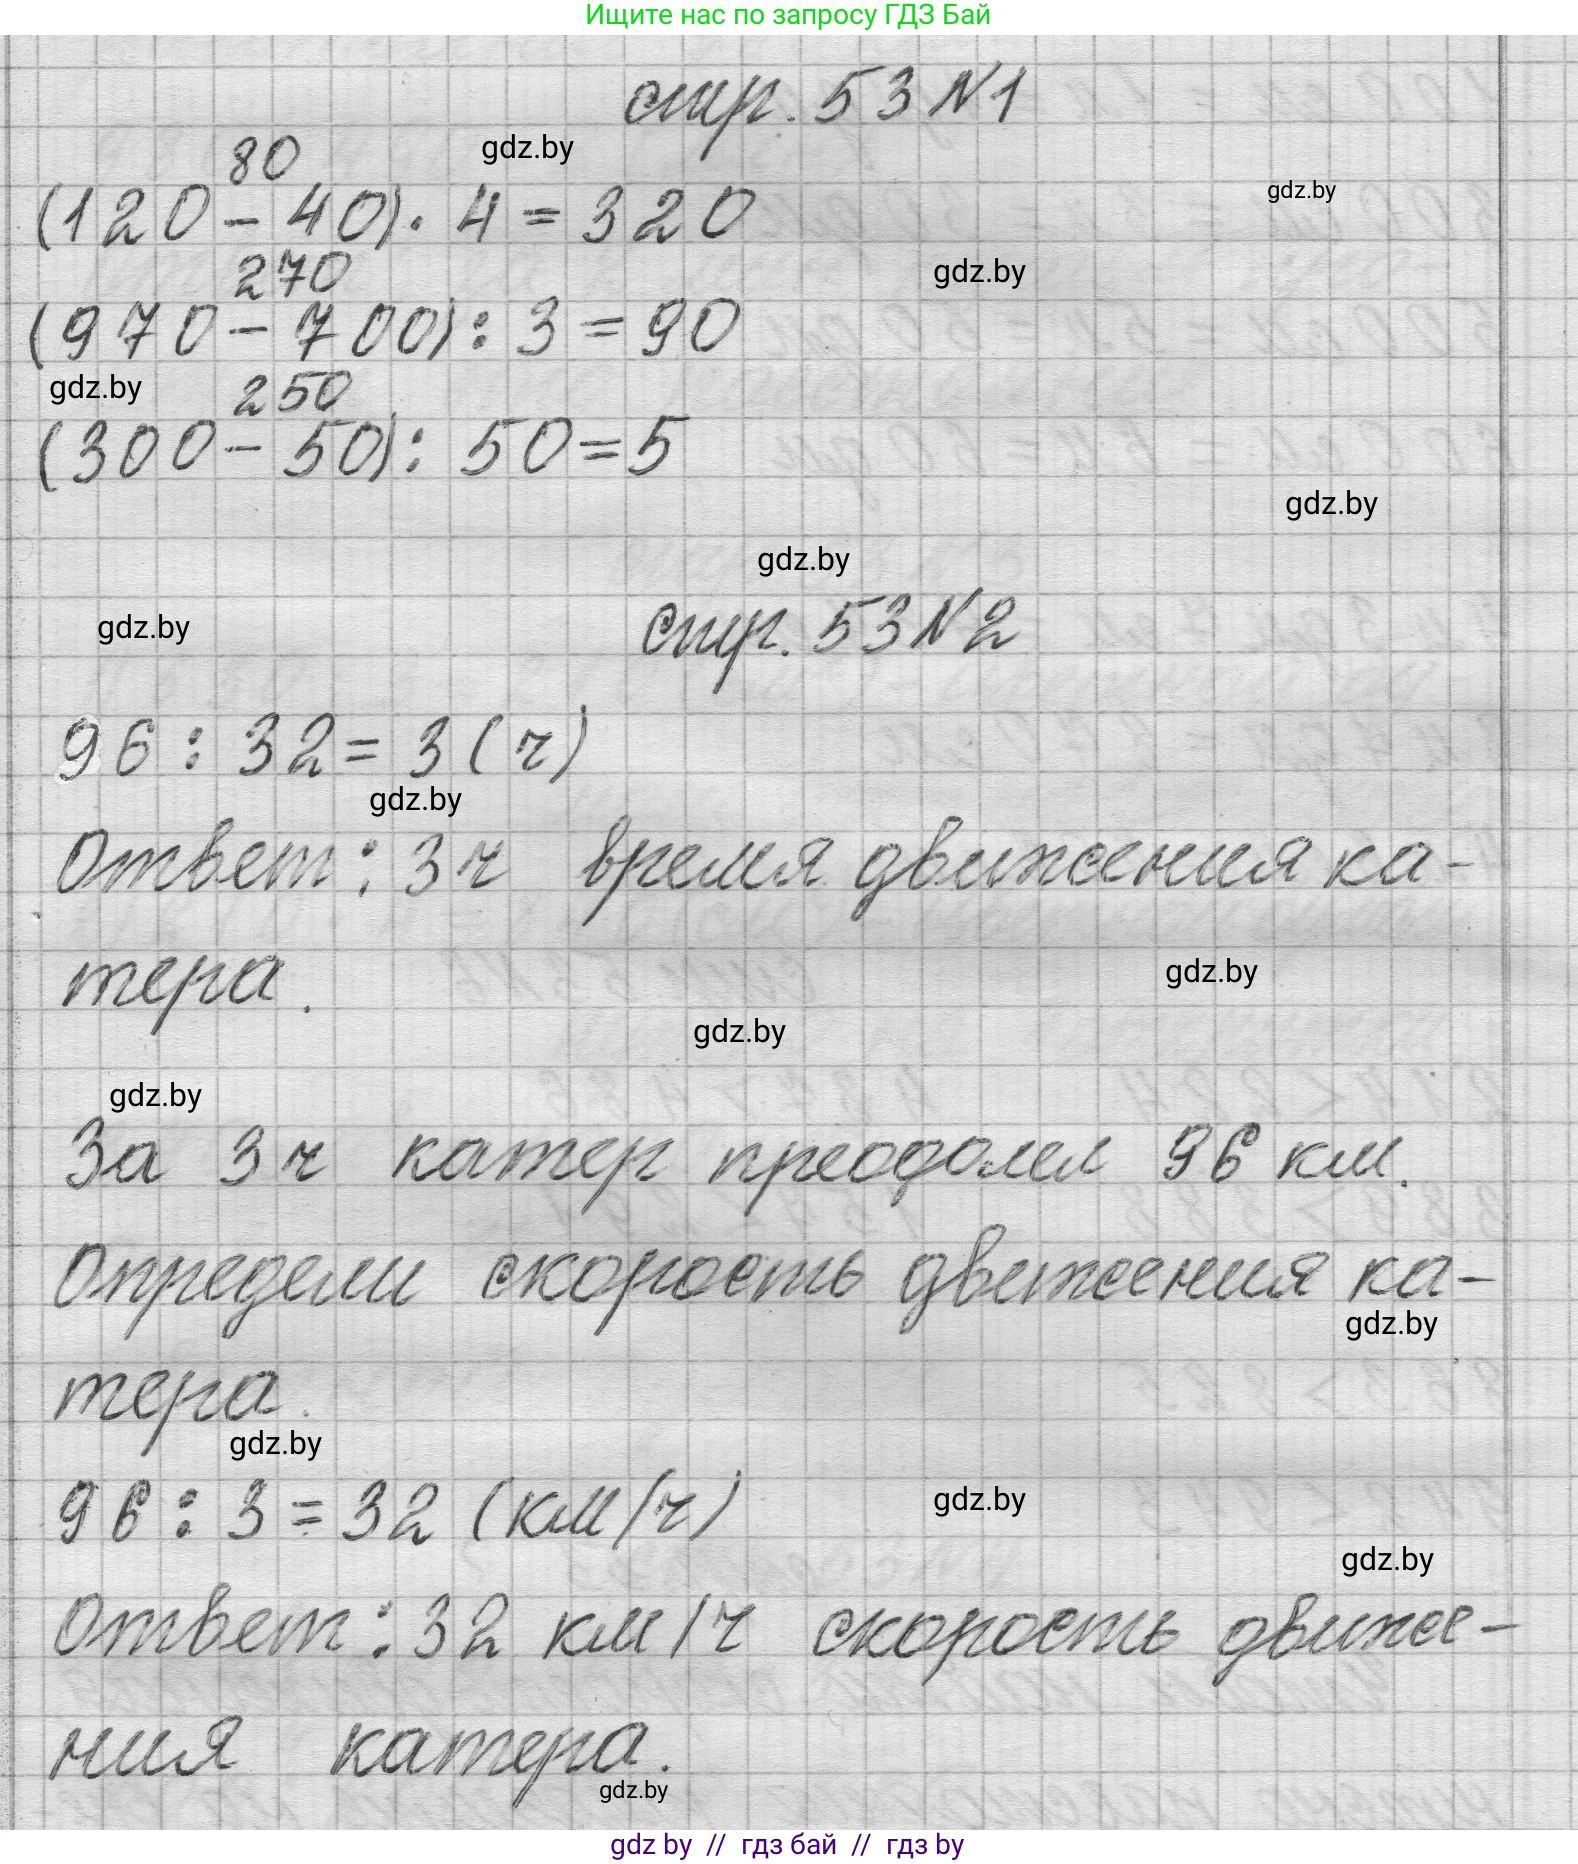 Ищите нас по запросу ГДЗ Бай
стр. 53 N1
gdz.by
80
(120 - 40) · 4 = 320
gdz.by
270
gdz.by
(970 - 700) : 3 = 90
gdz.by
250
(300 - 50) : 50 = 5
gdz.by
gdz.by
gdz.by
стр. 53 N2
96 : 32 = 3 (ч)
gdz.by
Ответ : 3 ч время движения ка-
тера.
gdz.by
gdz.by
gdz.by
За 3 ч катер преодолел 96 км.
Определи скорость движения ка-
gdz.by
тера.
gdz.by
96 : 3 = 32 (км/ч)
gdz.by
gdz.by
Ответ : 32 км/ч скорость движе-
ния катера.
gdz.by
gdz by // гдз бай // гдз by